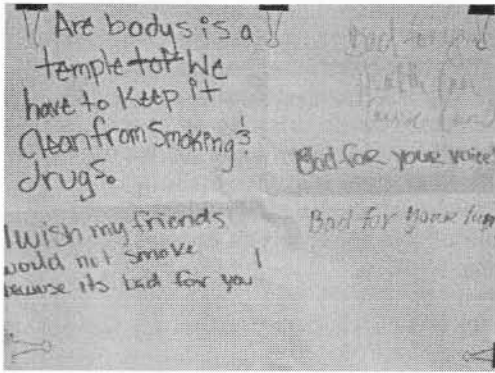 Are bodys is a
temple tof We
have to Keep it
Clean from Smoking &
drugs.
I wish my friends
would not smoke
because its bad for you!
Bad for your voice!
Bad for your